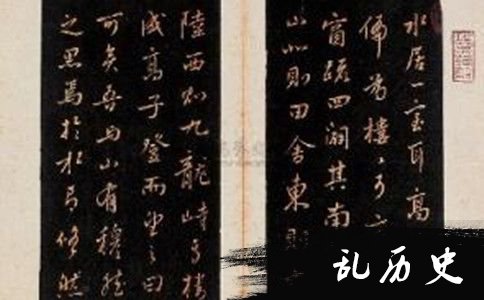 水居一室耳高
偏為樓〻可
窗疏四闢其南
山北則田舍東則
陸西則九龍峙焉樓
成高子登而望之曰
可矣吾於山有穆然
之思焉於水有悠然
乱历史